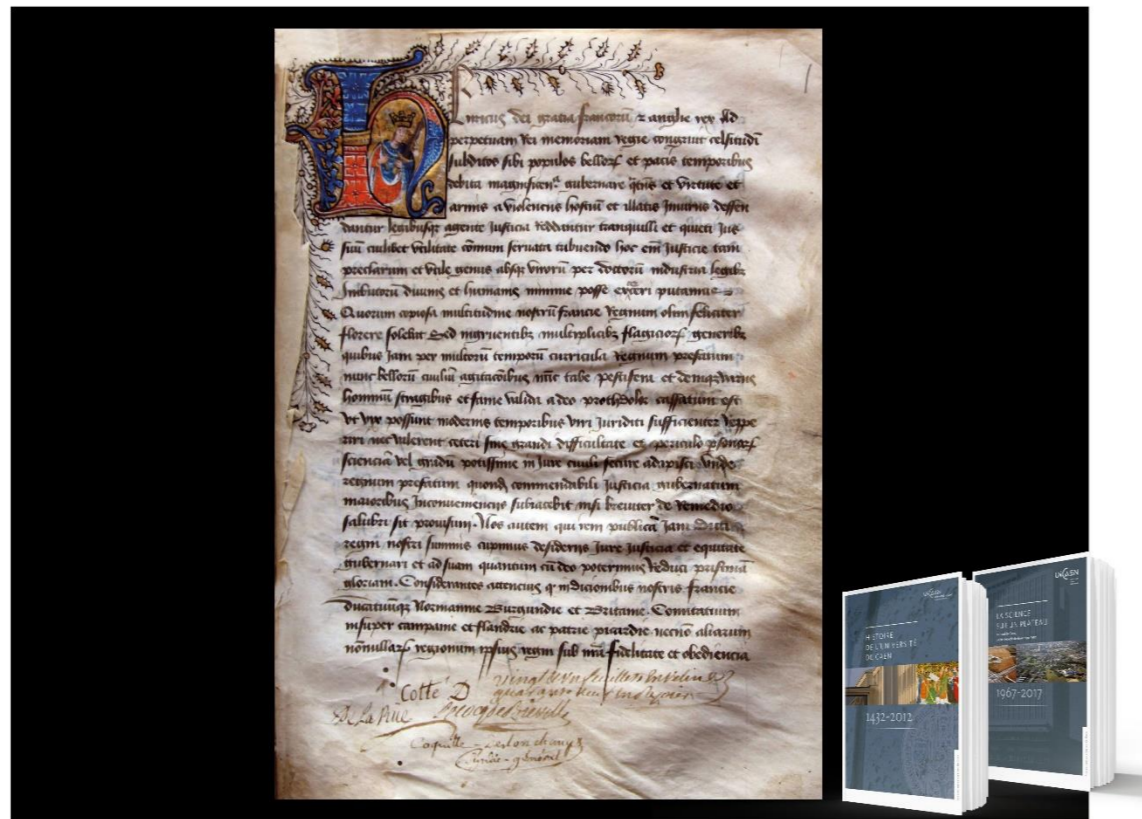 Henricus dei gratia francorū & anglie rex Ad
perpetuam Rei memoriam Regie congruit celsitudī
subditos sibi populos bellorꝝ et pacis temporibus
debita magnificenᵃ gubernare et virtute et
armis a violenciis hostiū et illatis Iniuriis deffen
dantur legibusqꝫ agente Iusticia Reddantur tranquille et quieti Ius
suū cuilibet vtilitate cōmuni seruata tribuendo hoc em̄ Iusticie tam
preclarum et vtile genus absqꝫ virorū per doctorū industria legibꝫ
Imbutorū diuinis et humanis minime posse exerceri putamus
Quorum copiosa multitudine nostrū francie Regnum olim feliciter
florere solebat Sed ingruentibꝫ multiplicibꝫ flagiciorꝝ generibꝫ
quibus Iam per multorū temporū curricula Regnum prefatum
nunc bellorū ciuiliū agitacōibus nūc tabe pestifera et demqꝫ variis
hominū stragibus et fame valida adeo prothdolor cassatum est
vt vix possunt modernis temporibus viri Iuridici sufficienter Reppe
riri nec valerent ceteri sine grandi difficultate et periculo psonarꝝ
scienciā vel gradū potissime in Iure ciuili secure adapisci vnde
regnum prefatum quondā commendabili Iusticia gubernatum
maioribus Inconuenienciis subiacebit nisi breuiter de Remedio
salubri sit prouisum. Nos autem qui rem publicā Iam dicti
regni nostri summis cupimus desideriis Iure Iusticia et equitate
gubernari et ad suam quantum cū deo poterimus Reduci pristinā
gloriam. Considerantes attencius q indicionibus nostris francie
ducatuūqꝫ Normannie Burgundie et Britanie. Comitatuum
insuper campanie et flandrie ac patrie picardie necnō aliarum
nōnullarꝝ regionum ipsius regni sub nr̄a fidelitate et obediencia
Cotté D vingt et un feuillets
De La Rue
Coquille Deslongchamps
Sindic-général
UNICAEN
HISTOIRE
DE L'UNIVERSITÉ
DE CAEN
1432-2012
UNICAEN
LA SCIENCE
SUR UN PLATEAU
1967-2017